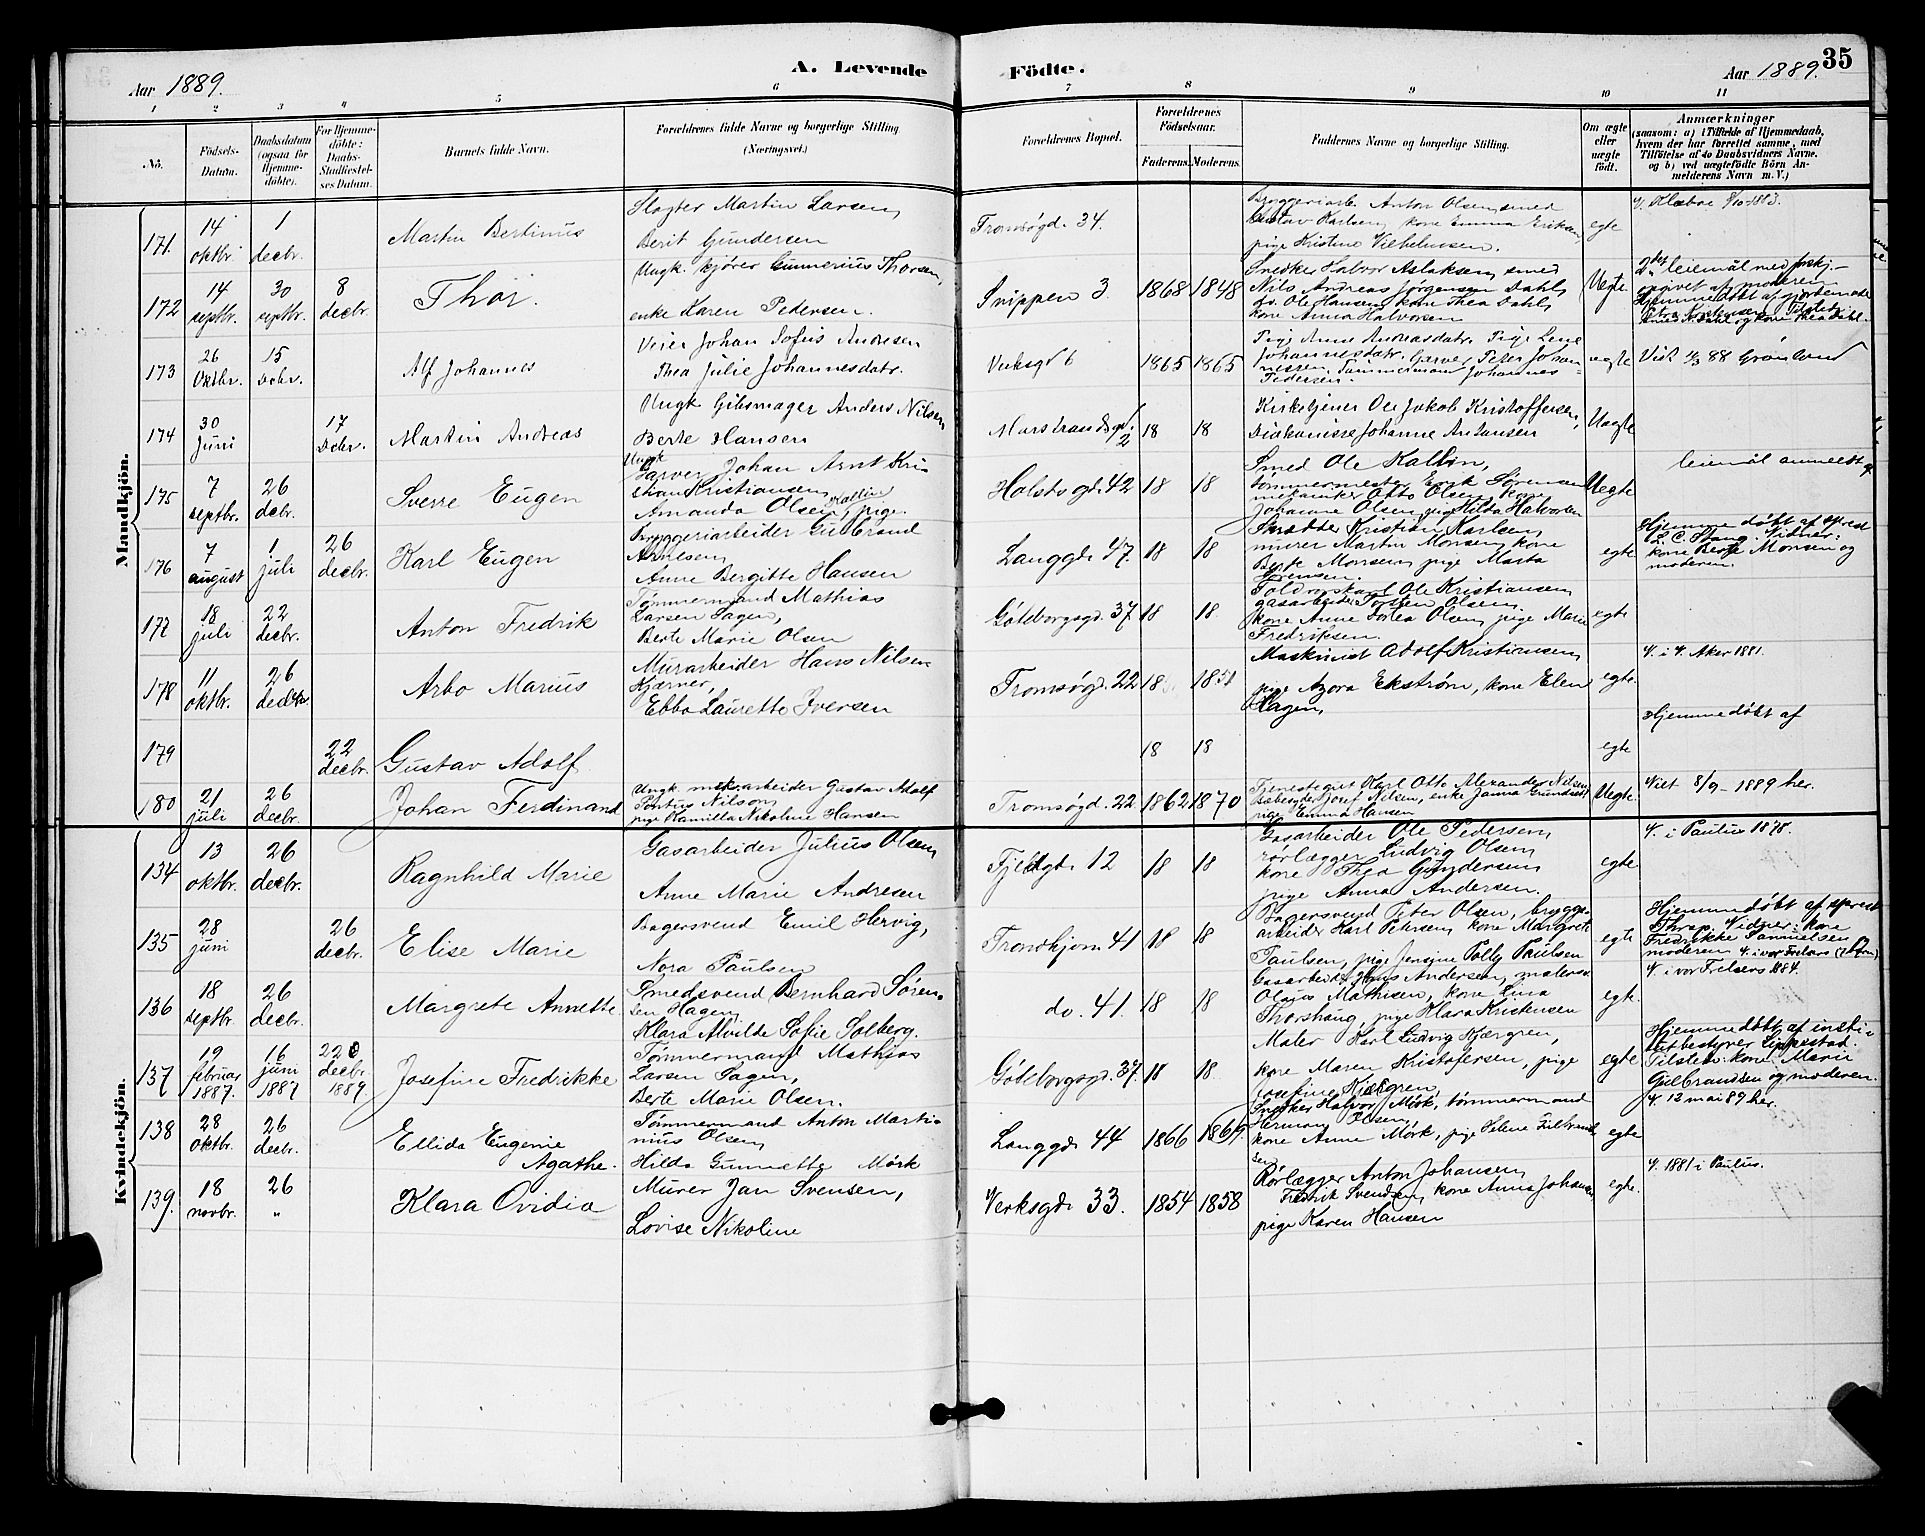 Aar 1889.
A. Levende
Födte.
Aar 1889.
35
1 2 3 4 5 6 7 8 9 10 11
No.
Födsels-Datum.
Daabsdatum (ogsaa for Hjemme-döbte).
For Hjemme-döbte: Daabs-Stadfæstel-ses Datum.
Barnets fulde Navn.
Forældrenes fulde Navne og borgerlige Stilling (Næringsvei.)
Forældrenes Bopæl.
Forældrenes Födselsaar.
Faderens. Moderens.
Faddernes Navne og borgerlige Stilling.
Om ægte eller uægte födt.
Anmærkninger
(saasom: a) i Tilfælde af Hjemmedaab,
hvem der har forrettet samme, med
Tilföielse af to Daabsvidners Navne.
og b) ved uægtefödte Börn An-
melderens Navn m. V.)
Mandkjön.
171. 14 oktbr. 1 decbr. Martin Bertinus
Slagter Martin Larsen,
Berit Gundersen
Tromsögd. 34.
Byggeriarb. Anton Olsen, smed
Gustav Karlsen, kone Emma
pige Kristine Vilhelmsen.
egte
172 14 septbr. 30 septbr. 8 decbr. Thor.
Ungk. kjører Gunnerius Thorsen,
enke Karen Pedersen.
Svippen 3. 1868 1848
Snedker Halvor Aslaksen, smed
Nils Andreas Jørgensen Dahl,
do. Ole Hansen, kone Thea Dahl,
kone Anna Halvorsen
Uegte
leiemål med forskj.
opgivet af moderen
173 26 Oktbr. 15 Decbr. Alf Johannes
Johan Sofus Andresen
Thea Julie Johannesdatr.
Verksgd 6 1865 1865
Pige Anne Andreasdatr. Pige Lene
Johannesdatr. Garver Peter Johan-
nessen. Tømmermand Johannes
Pedersen.
uegte
88 Grønland
174 30 Juni 17 Decbr. Martin Andreas
Ungk Gibsmager Anders Nilsen
Berte Hansen
Marstrandsgd. 2 18 18
Kirketjener Ole Jakob Kristoffersen,
Diakonisse Johanne Antonsen
Uegte
175 7 septbr. 26 decbr. Sverre Eugen
Ungk
Garver Johan Arnt Kri-
stian Kristiansen
Amanda Olsen, pige.
Holstsgd. 42 18 18
Smed Ole Kallin,
tømmermester Sørensen
mekaniker Otto Olsen, kone
Johanne Olsen, pige Hilda Halvorsen
Uegte
leiemål anmeldt
176 7 august 1 juli 26 decbr. Karl Eugen
Bryggeriarbeider Gulbrand
Arnesen,
Anne Bergitte Hansen
Langgd. 47. 18 18
Kristian Karlsen,
murer Martin Monsen, kone
Berte Monsen, pige Marta
Sørensen.
egte
Hjemmedøbt af sprest
L. C. Stang. Vidner:
kone Berte Monsen og
moderen.
177 18 juli 22 decbr. Anton Fredrik
Tømmermand Mathias
Larsen Sagen,
Berte Marie Olsen
Göteborgsgd. 37 18 18.
Ole Kristiansen
gasarbeider Torsten Olsen.
kone Anne Olsen, pige Marie
Fredriksen.
egte
178 11 oktbr. 26 decbr. Arbo Marius
Murarbeider Hans Nilsen
Hjærner,
Ebba Laurette Iversen
Tromsøgd. 22 18 1851
Maskinist Adolf Kristiansen,
pige Azora Ekstrøm, kone Elen
Hagen,
egte
v. i V. Aker 1881.
179 22 decbr. Gustav Adolf
18 18
egte
Hjemmedøbt af
180 21 juli 26 decbr. Johan Ferdinand
Ungk mek.arbeider Gustav Adolf
Pontus Nilson,
pige Kamilla Nikoline Hansen
Tromsøgd. 22 1862 1870
Tjenestegut Karl Otto Alexander Nilsen,
Josef Nilsen, enke Janna
pige Emma Hansen
Uegte
Viet 8/9 - 1889 her.
Kvindekjön.
134 13 oktbr. 26 decbr. Ragnhild Marie
Gasarbeider Julius Olsen,
Anne Marie Andresen
Fjeldgd. 12 18 18
Gasarbeider Ole Pedersen,
rørlægger Ludvig Olsen,
kone Thea Gundersen,
pige Anna Andersen.
egte
v. i Paulus 1878.
135 28 juni 26 decbr. Elise Marie
Bagersvend Emil Hervig,
Nora Paulsen
Trondhjem. 41 18 18
Bagersvend Peter Olsen, brygge-
arbeider Karl Petersen, kone Margrete
Paulsen, pige Jensine Polly Paulsen
egte
Hjemmedøbt af sprest
Thrap. Vidner: kone
Fredrikke Samuelsen
moderen
136 18 septbr. 26 decbr. Margrete Annette.
Smedsvend Bernhard Søren-
sen Hagen,
Klara Alvilde Sofie Solberg.
do. 41. 18 18
Gasarbeid. Hans Andersen, malersv.
Olaus Mathisen, kone Lina
Thorshaug, pige Klara Kristensen
egt.
v. i vor Frelsers 1884.
137 19 februar 1887. 16 juni 1887 22 decbr. 1889. Josefine Fredrikke
Tømmermand Mathias
Larsen Sagen,
Berte Marie Olsen.
Göteborgsgd. 37. 18 18.
Maler Karl Ludvig Kjærgren,
kone Maren Kristofersen, pige
Josefine Kjærgren,
egte
Hjemmedøbt af insti-
tutbestyrer Lippestad.
Tilsted: kone Marie
Gulbrandsen og moderen.
138 28 oktbr. 26 decbr. Ellida Eugenie
Agathe.
Tømmermand Anton Marti-
nius Olsen,
Hilda Gunnette Mørk
Langgd. 44 1866 1869.
Snedker Halvor Mørk, tømmermand
Herman Olsen,
kone Anne Mørk, pige Helene
egte
v. 12 mai 89 her.
139. 18 novbr. 26 " Klara Ovidia
Murer Jan Svensen,
Lovise Nikoline
Verksgd. 33. 1854 1858
Rørlægger Anton Johansen,
Fredrik Svendsen, kone Anna Johansen
pige Karen Hansen
egte.
v. 1881 i Paulus.